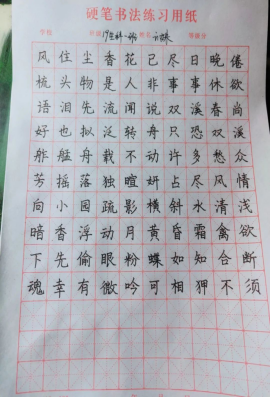 硬笔书法练习用纸
风住尘香花已尽日晚倦
梳头物是人非事事休欲
语泪先流闻说双溪春尚
好也拟泛轻舟只恐双溪
舴艋舟载不动许多愁众
芳摇落独暄妍占尽风情
向小园疏影横斜水清浅
暗香浮动月黄昏霜禽欲
下先偷眼粉蝶如知合断
魂幸有微吟可相狎不须